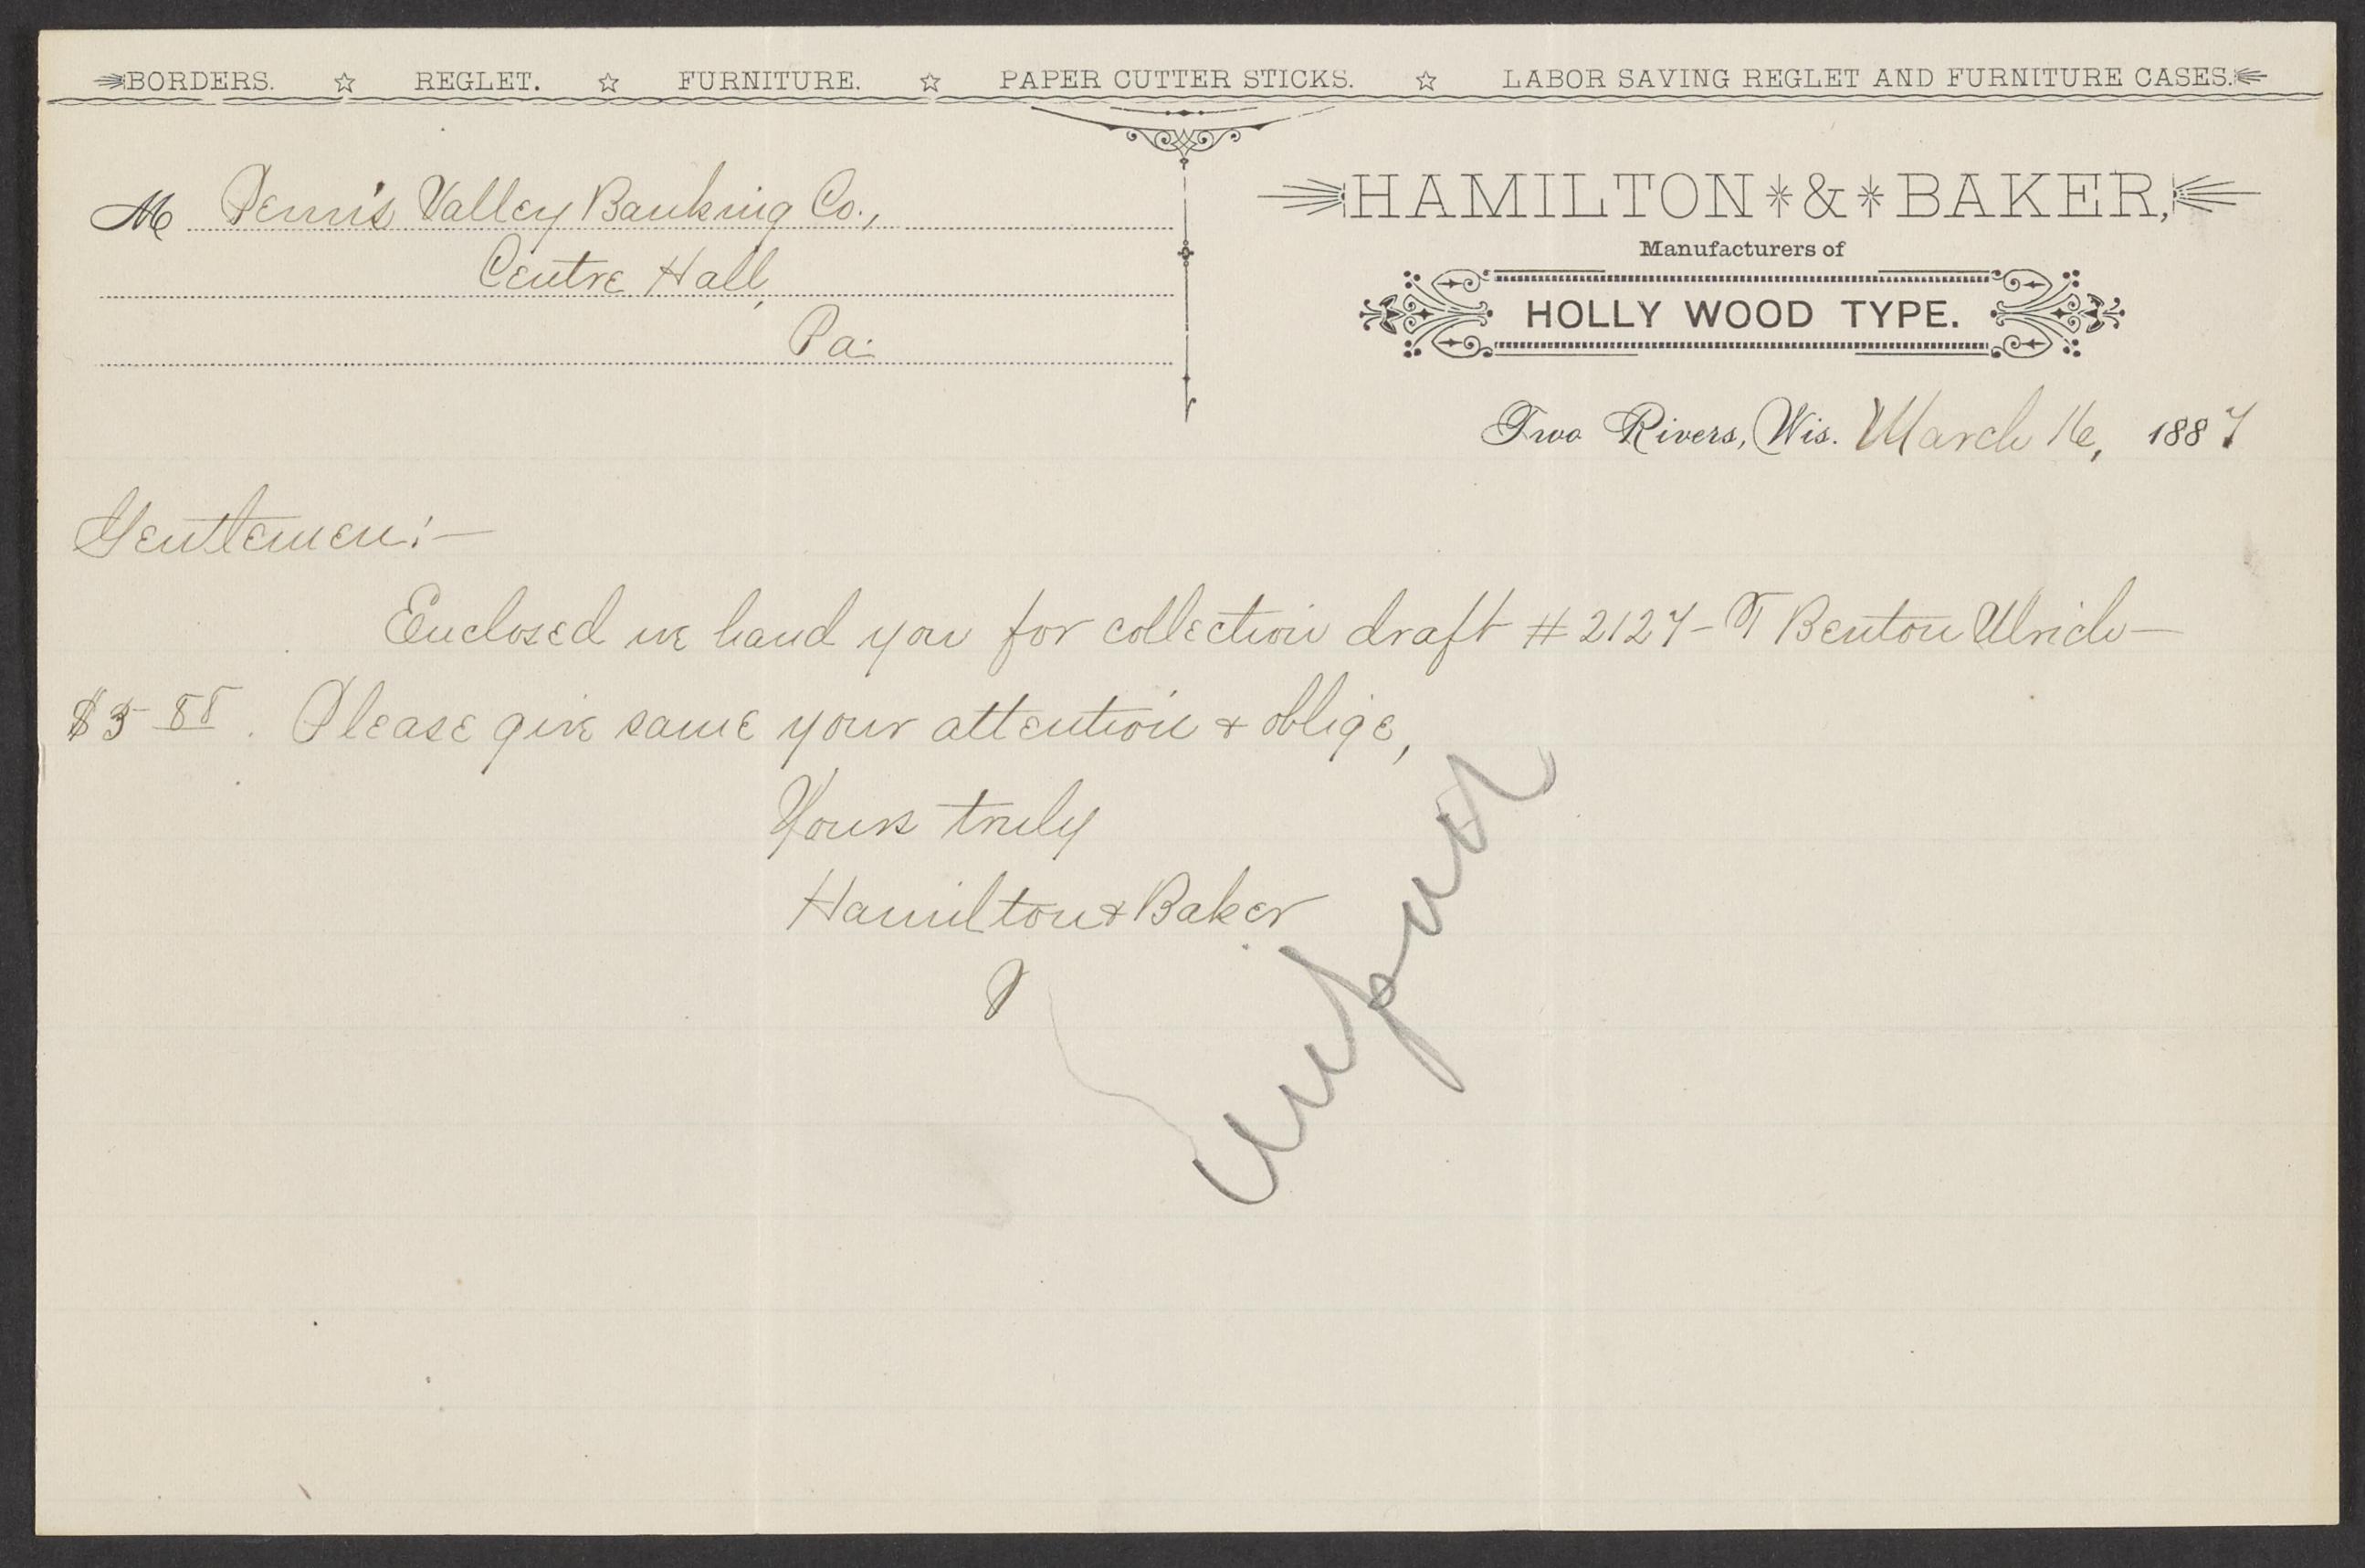 BORDERS. ☆ REGLET. ☆ FURNITURE. ☆ PAPER CUTTER STICKS. ☆ LABOR SAVING REGLET AND FURNITURE CASES.
HAMILTON * & * BAKER,
Manufacturers of
HOLLY WOOD TYPE.
M Penn's Valley Banking Co.,
Centre Hall,
Pa.
Two Rivers, Wis. March 16, 1887
Gentlemen:—
Enclosed we hand you for collection draft # 2127 - T Benton Ulrich —
$3 88. Please give same your attention & oblige,
Yours truly
Hamilton & Baker
unpaid